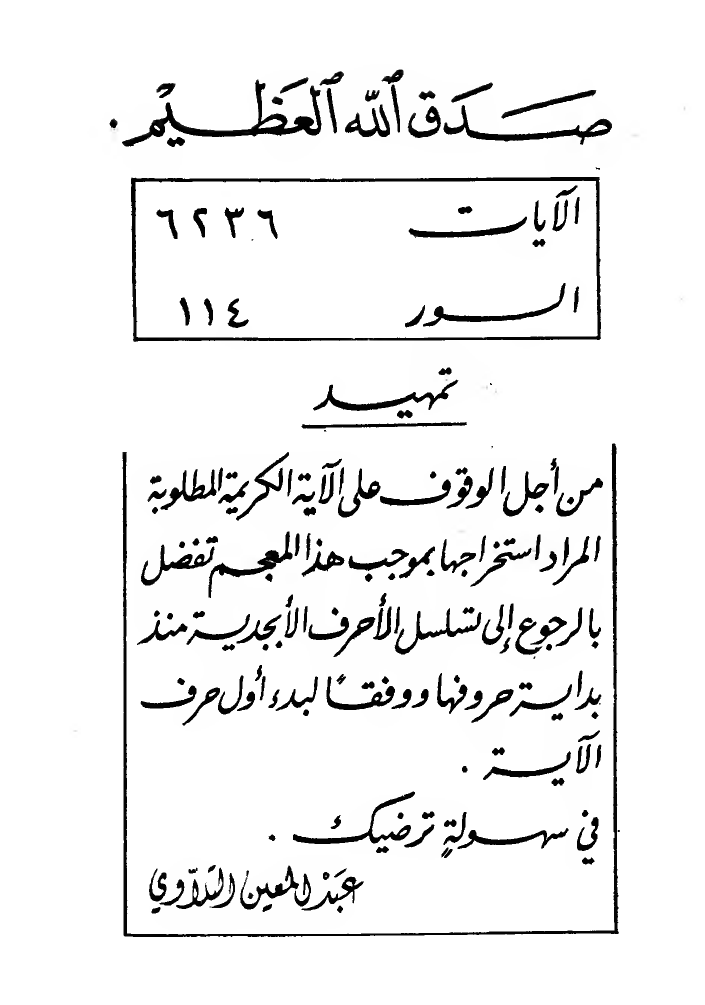 صَدَقَ ٱللّٰه ٱلعَظيْم .
الآيات ٦٢٣٦
السور ١١٤
تمهيد
من أجل الوقوف على الآية الكريمة المطلوبة
المراد استخراجها بموجب هذا المعجم تفضل
بالرجوع إلى تسلسل الأحرف الأبجدية منذ
بداية حروفها ووفقًا لبدء أول حرف
الآية .
في سهولةٍ ترضيك .
عبد المعين